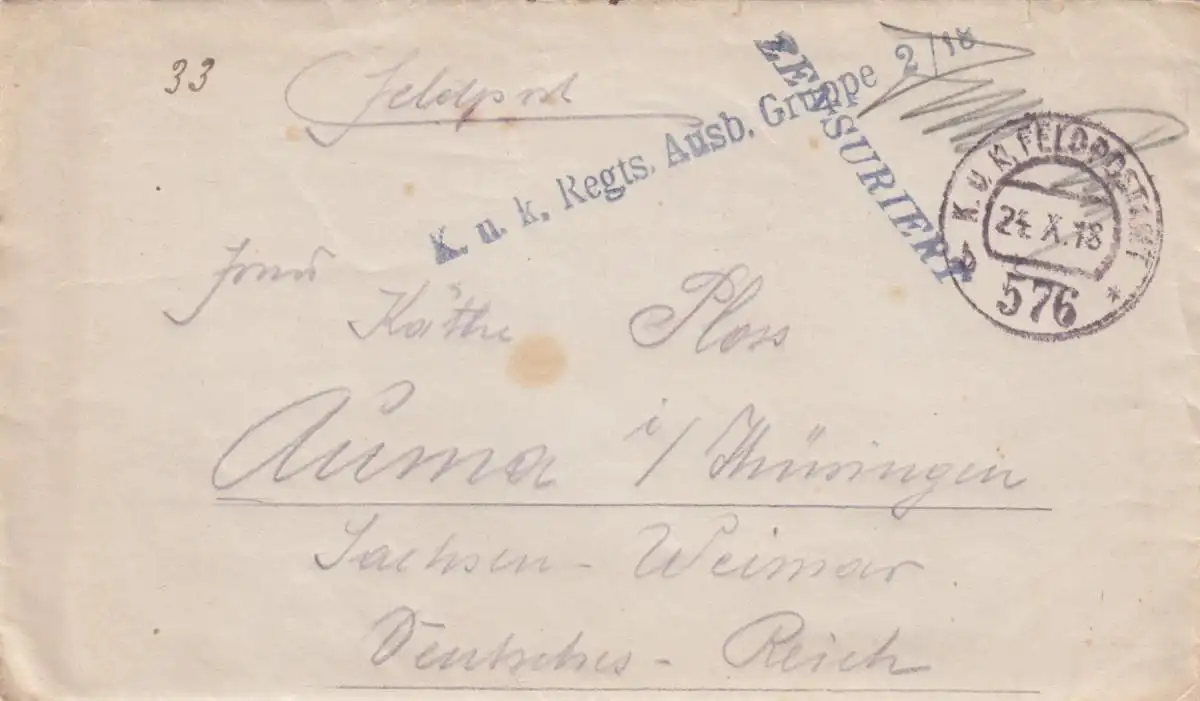 33
Feldpost
K. u. k. Regts. Ausb. Gruppe 2/18
ZENSURIERT
K. u. K. FELDPOSTAMT
24. X. 18
b *
576
Frau
Käthe Ploss
Auma i/Thüringen
Sachsen-Weimar
Deutsches-Reich